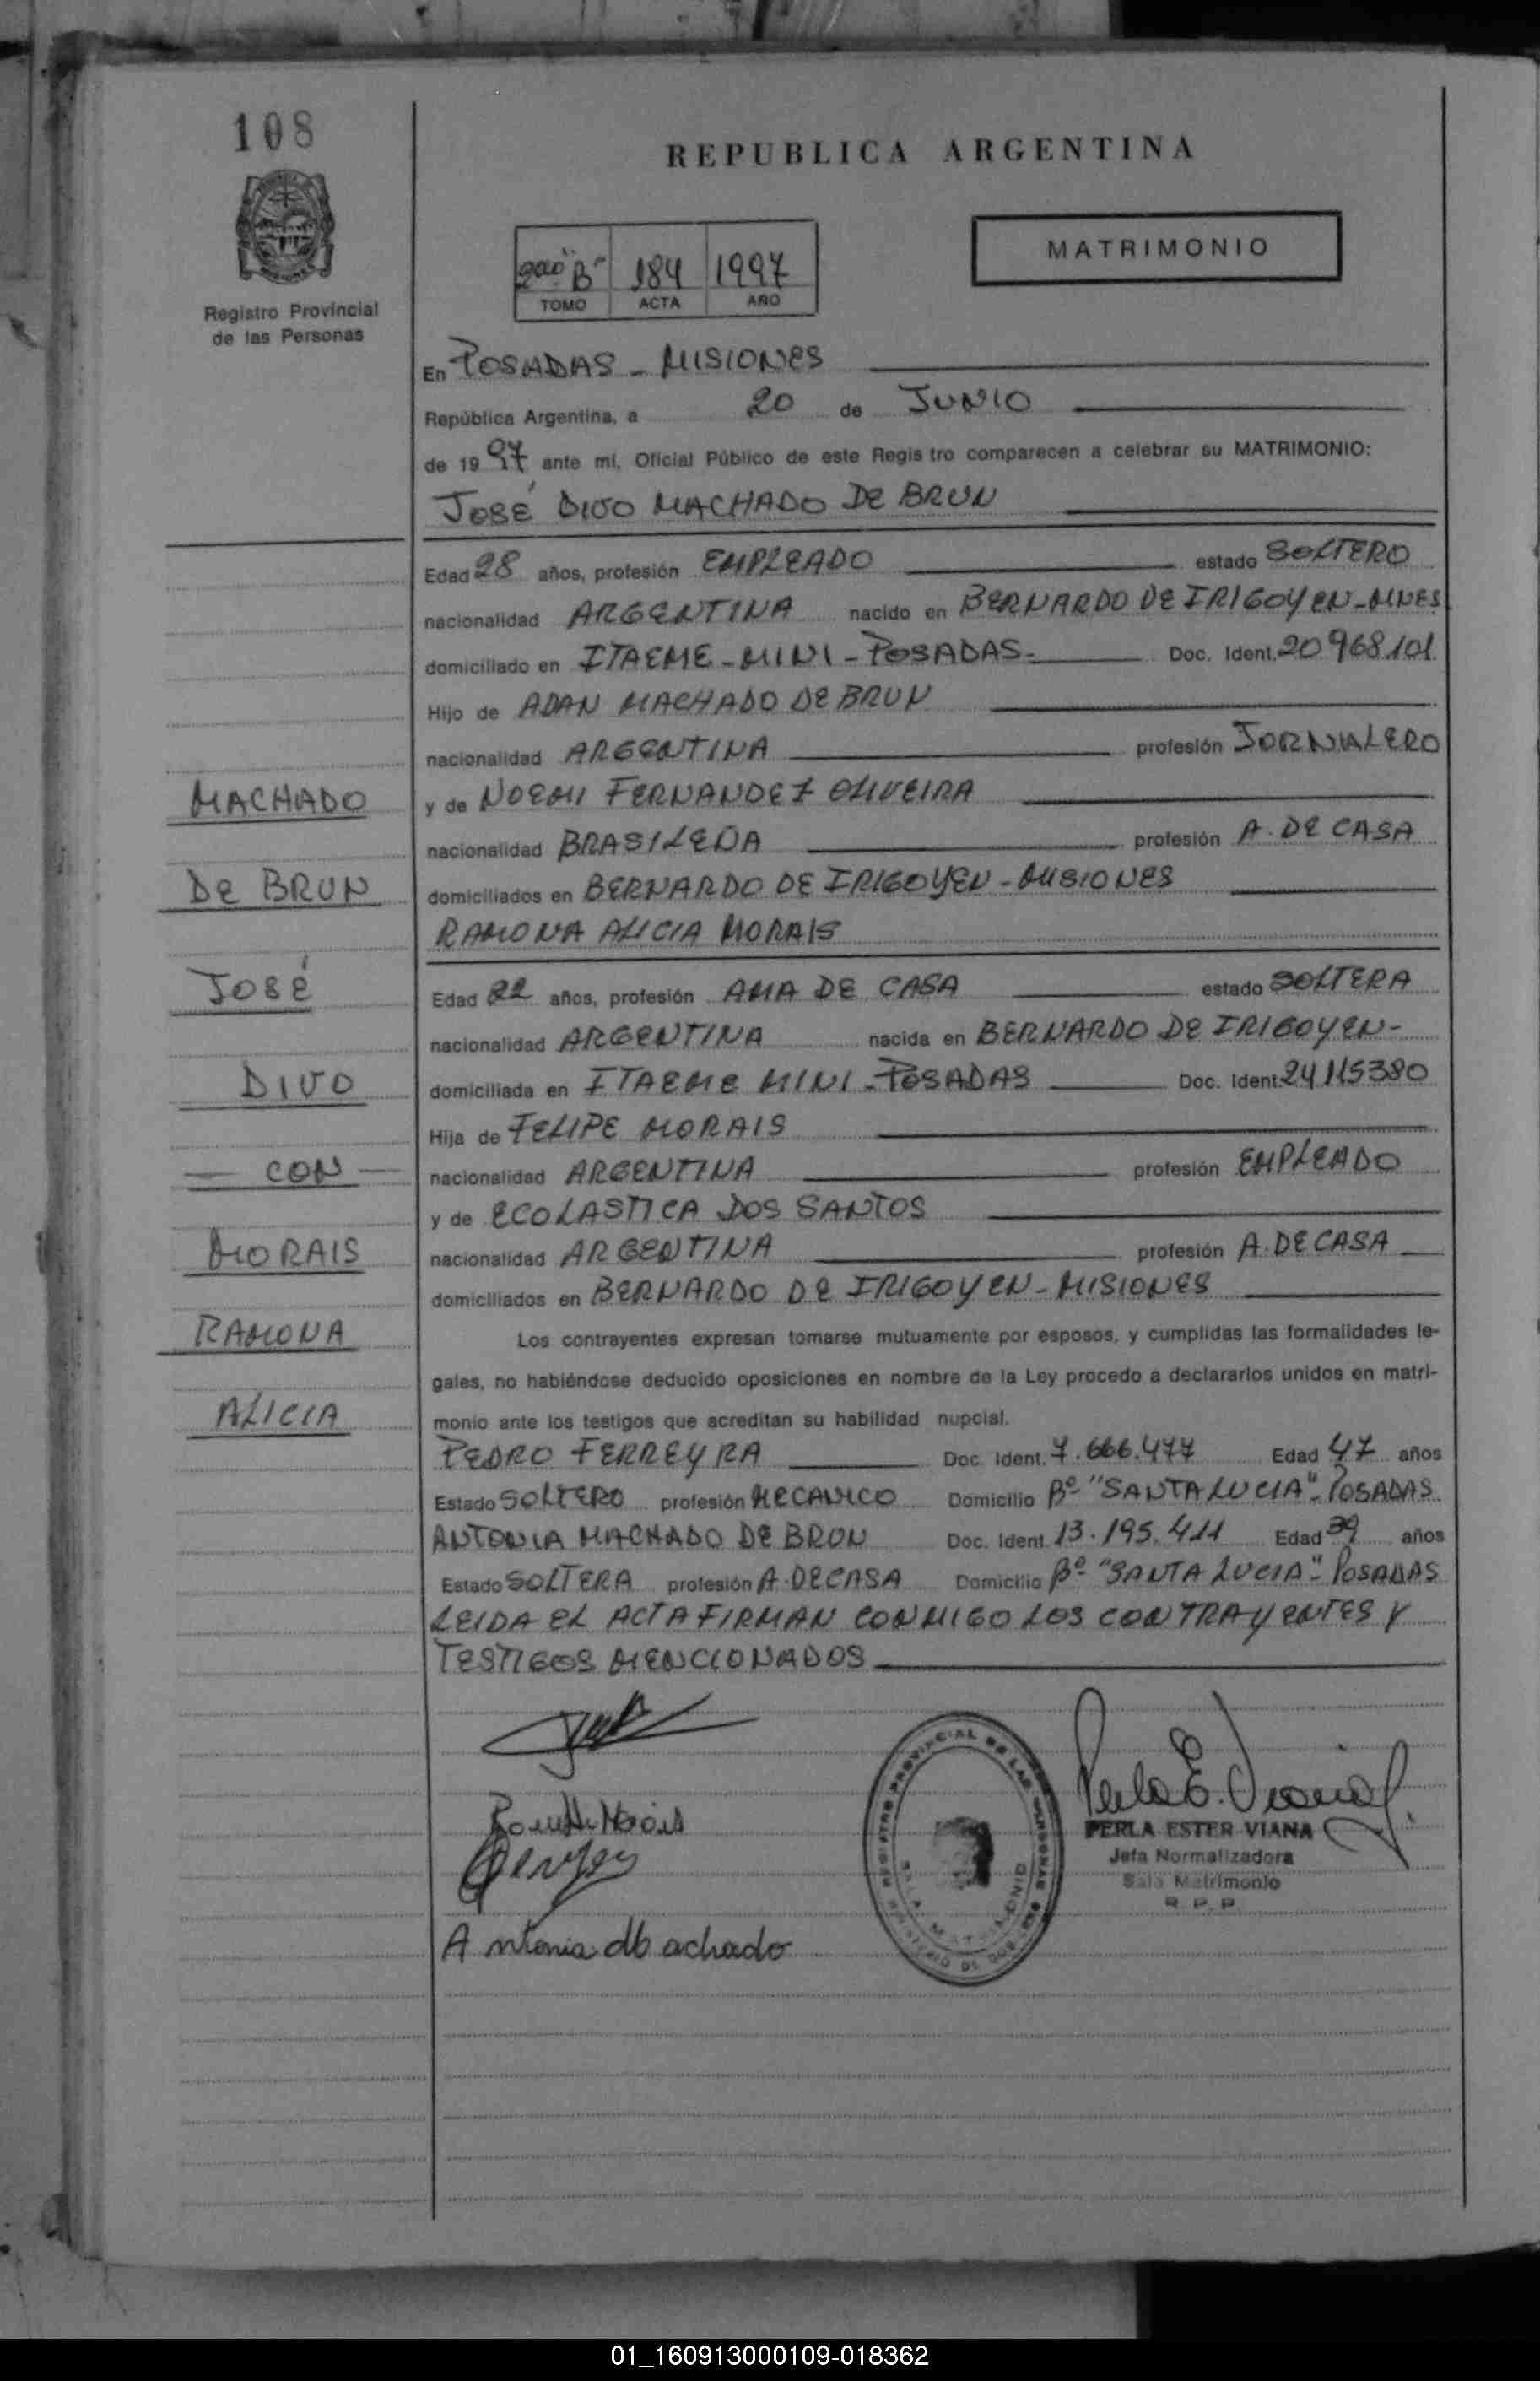 108
REPUBLICA ARGENTINA
2do "B" 184 1997
TOMO ACTA AÑO
MATRIMONIO
Registro Provincial
de las Personas
En POSADAS - MISIONES
República Argentina, a 20 de JUNIO
de 1997 ante mi, Oficial Público de este Regis tro comparecen a celebrar su MATRIMONIO:
JOSÉ DIVO MACHADO DE BRUN
Edad 28 años, profesión EMPLEADO estado SOLTERO
nacionalidad ARGENTINA nacido en BERNARDO DE IRIGOYEN-MNES
domiciliado en ITAEME-MINI-POSADAS- Doc. Ident. 20968101
Hijo de ADAN MACHADO DE BRUN
nacionalidad ARGENTINA profesión JORNALERO
y de NOEMI FERNANDEZ OLIVEIRA
nacionalidad BRASILEÑA profesión A. DE CASA
domiciliados en BERNARDO DE IRIGOYEN-MISIONES
RAMONA ALICIA MORAIS
Edad 22 años, profesión AMA DE CASA estado SOLTERA
nacionalidad ARGENTINA nacida en BERNARDO DE IRIGOYEN-
domiciliada en ITAEME MINI-POSADAS Doc. Ident. 24115380
Hija de FELIPE MORAIS
nacionalidad ARGENTINA profesión EMPLEADO
y de ECOLASTICA DOS SANTOS
nacionalidad ARGENTINA profesión A. DE CASA
domiciliados en BERNARDO DE IRIGOYEN-MISIONES
Los contrayentes expresan tomarse mutuamente por esposos, y cumplidas las formalidades le-
gales, no habiéndose deducido oposiciones en nombre de la Ley procedo a declararlos unidos en matri-
monio ante los testigos que acreditan su habilidad nupcial.
PEDRO FERREYRA Doc. Ident. 7.666.477 Edad 47 años
Estado SOLTERO profesión MECANICO Domicilio Bº "SANTA LUCIA"-POSADAS
ANTONIA MACHADO DE BRUN Doc. Ident. 13.195.411 Edad 39 años
Estado SOLTERA profesión A. DE CASA Domicilio Bº "SANTA LUCIA"-POSADAS
LEIDA EL ACTA FIRMAN CONMIGO LOS CONTRAYENTES Y
TESTIGOS MENCIONADOS
MACHADO
DE BRUN
JOSÉ
DIVO
- CON -
MORAIS
RAMONA
ALICIA
REGISTRO PROVINCIAL DE LAS PERSONAS
SALA MATRIMONIO
MINISTERIO DE GOB
Perla E. Viana
PERLA ESTER VIANA
Jefa Normalizadora
Sala Matrimonio
R. P. P.
Antonia Machado
01_160913000109-018362